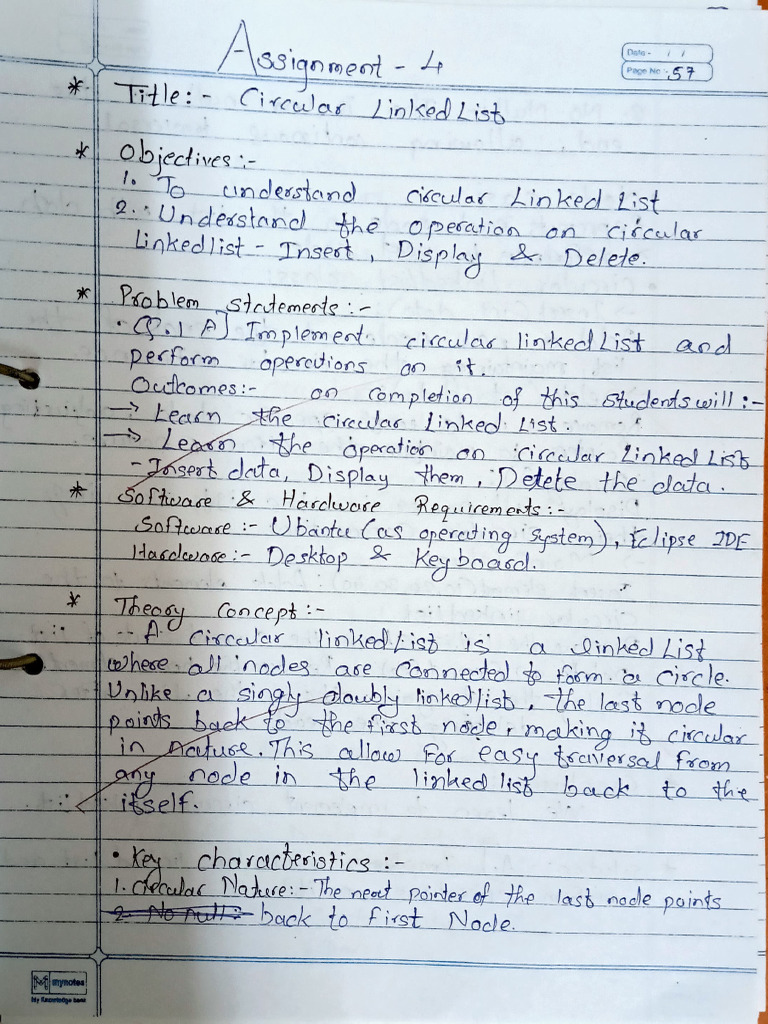 Assignment - 4
Date - / /
Page No : 57
* Title:- Circular Linked List
* Objectives:-
1. To understand circular Linked List
2. Understand the operation on circular
Linkedlist - Insert, Display & Delete.
* Problem statements:-
• Q.1 A] Implement circular linked List and
perform operations on it.
Outcomes:- on completion of this students will :-
→ Learn the circular Linked List.
→ Learn the operation on circular Linked List
- Insert data, Display them, Delete the data.
* Software & Hardware Requirements:-
Software:- Ubantu (as operating system), Eclipse IDE
Hardware:- Desktop & Keyboard.
* Theory Concept:-
- A Circular linked List is a linked List
where all nodes are connected to form a circle.
Unlike a singly doubly linkedlist, the last node
points back to the first node, making it circular
in nature. This allow for easy traversal from
any node in the linked list back to the
itself.
• Key characteristics:-
1. Circular Nature:- The next pointer of the last node points
2. No null:- back to first Node.
mynotes
My Knowledge bank